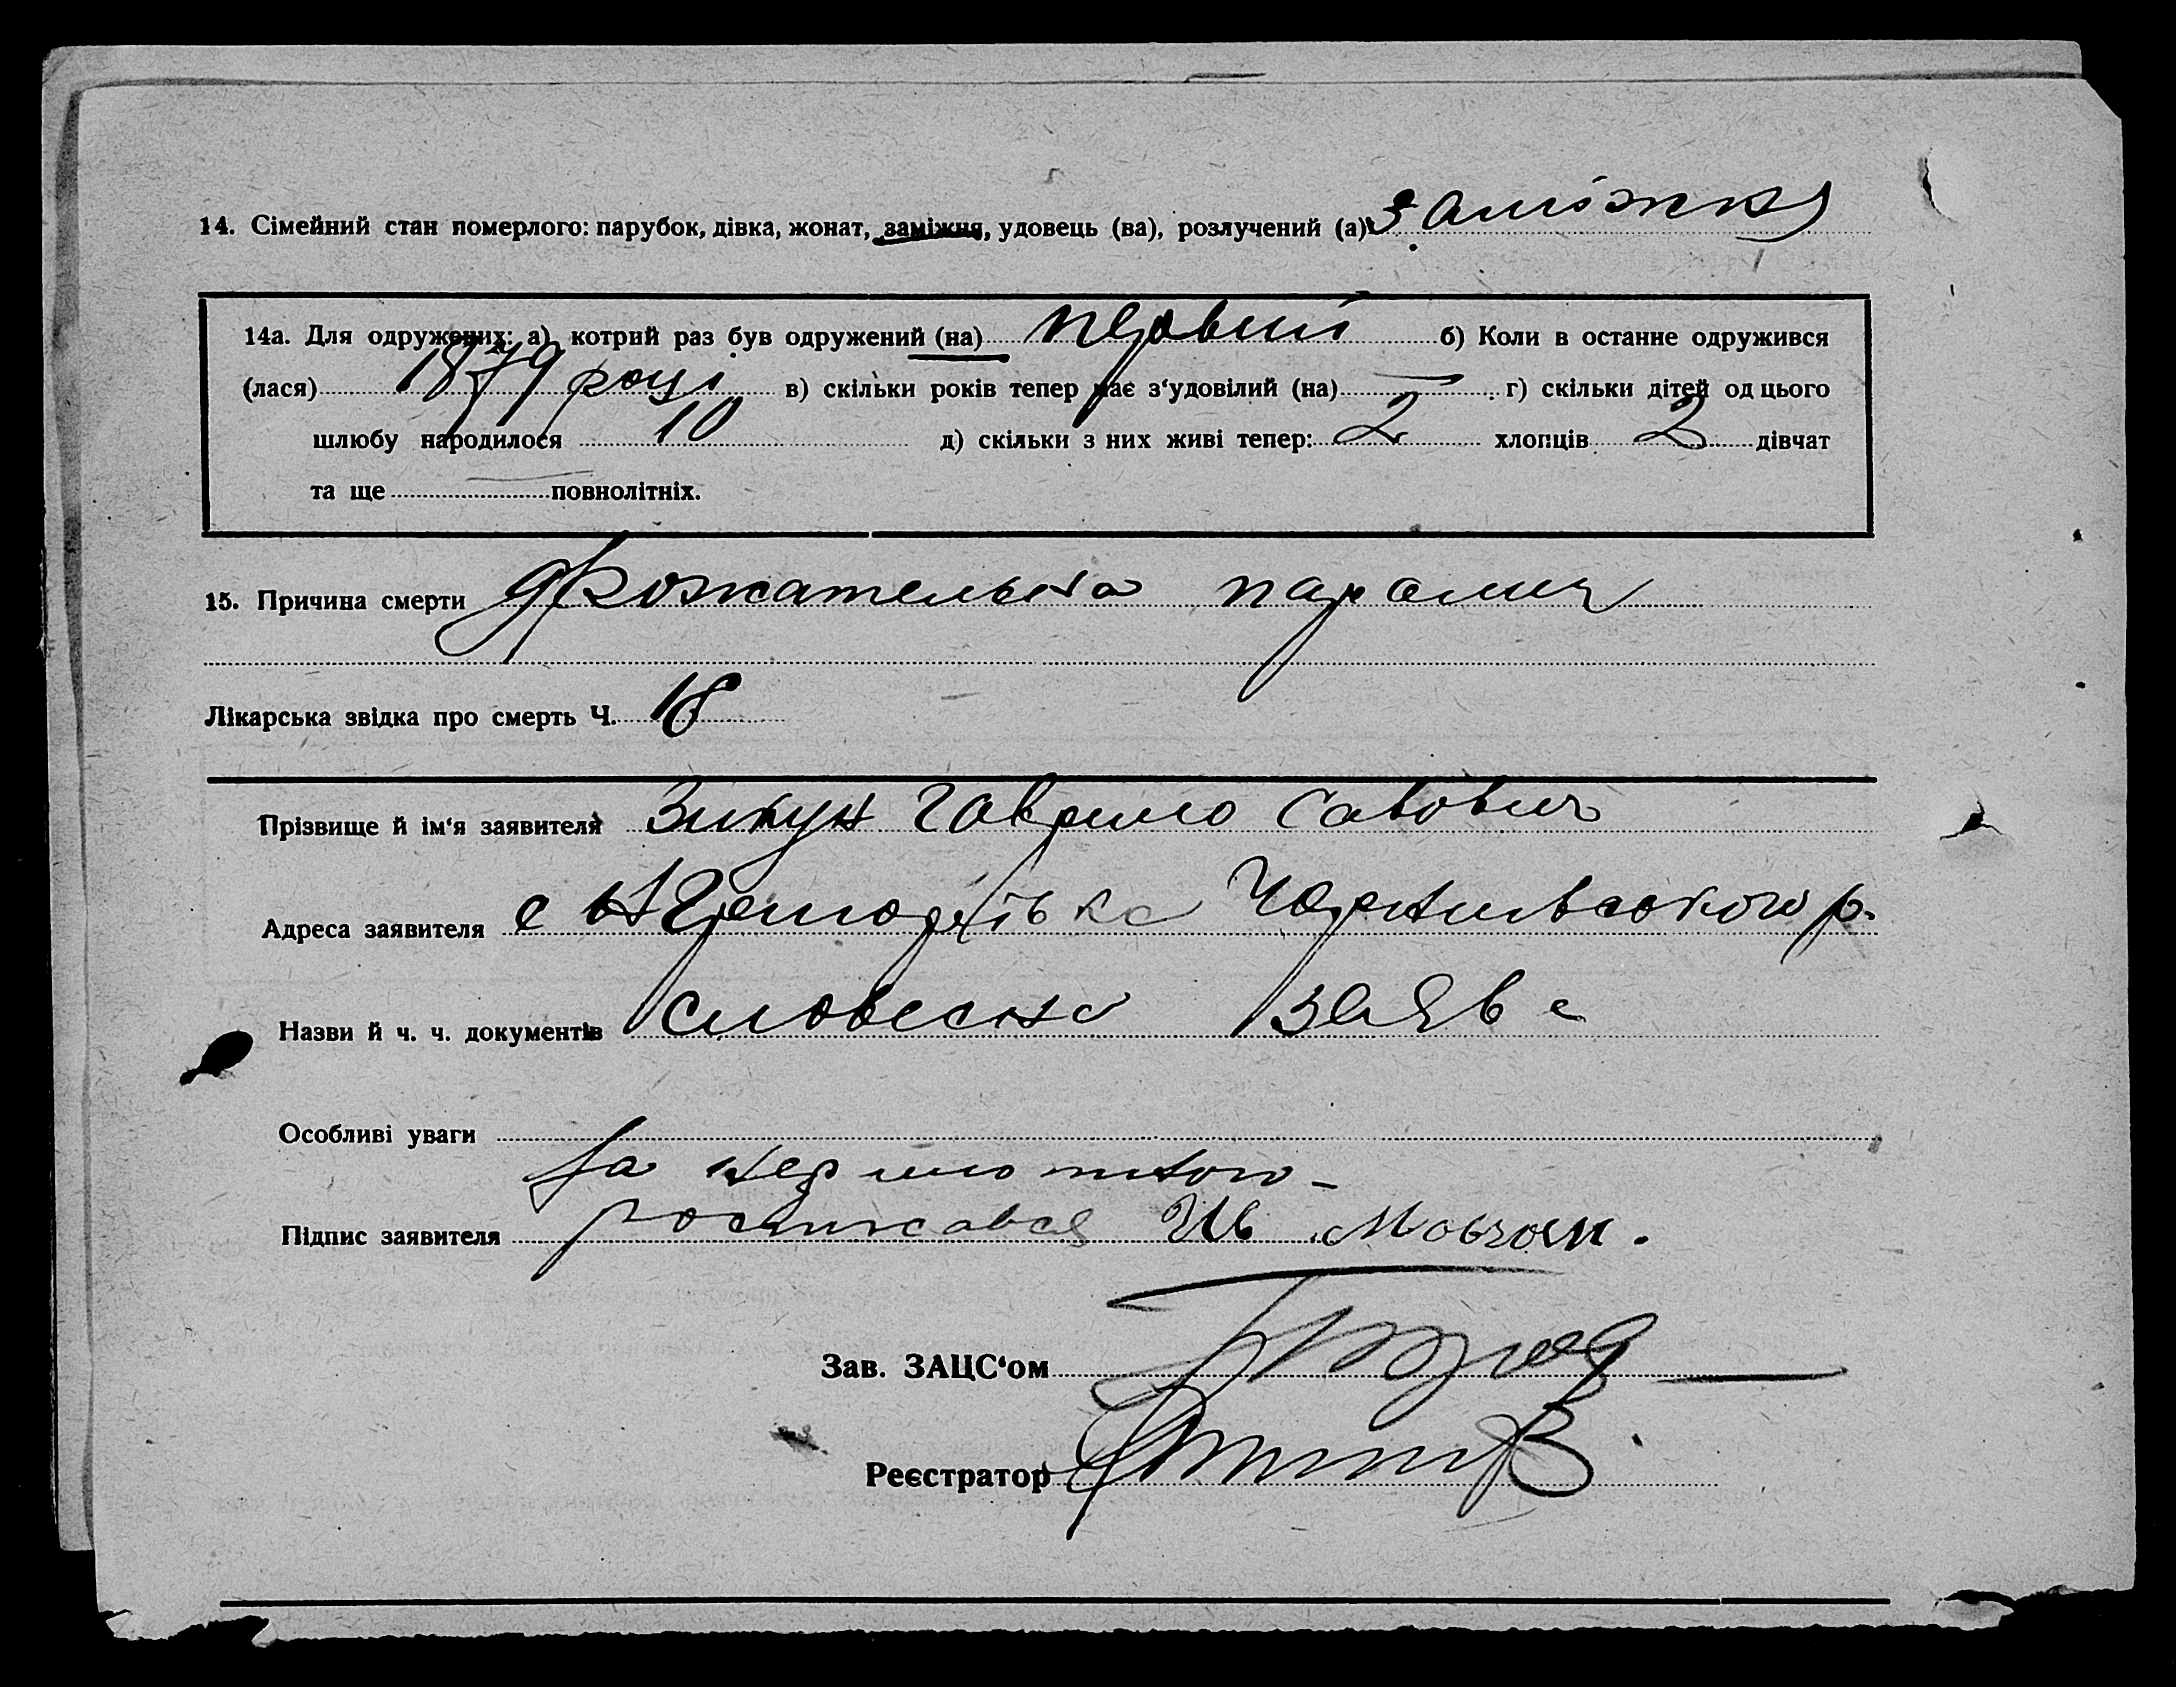 14. Сімейний стан померлого: парубок, дівка, жонат, заміжня, удовець (ва), розлучений (а) Заміжня
14а. Для одружених: а) котрий раз був одружений (на) первий б) Коли в останне одружився
(лася) 1879 році в) скільки років тепер має з‘удовілий (на) — г) скільки дітей од цього
шлюбу народилося 10 д) скільки з них живі тепер: 2 хлопців 2 дівчат
та ще — повнолітніх.
15. Причина смерти дрожательна параліч
Лікарська звідка про смерть Ч. 18
Прізвище й ім‘я заявителя Зикун Гаврило Савович
Адреса заявителя с
Назви й ч. ч. документів словесна заява
Особливі уваги
За неграмотного
Підпис заявителя росписався Ів Мовчан.
Зав. ЗАЦС‘ом
Реєстратор